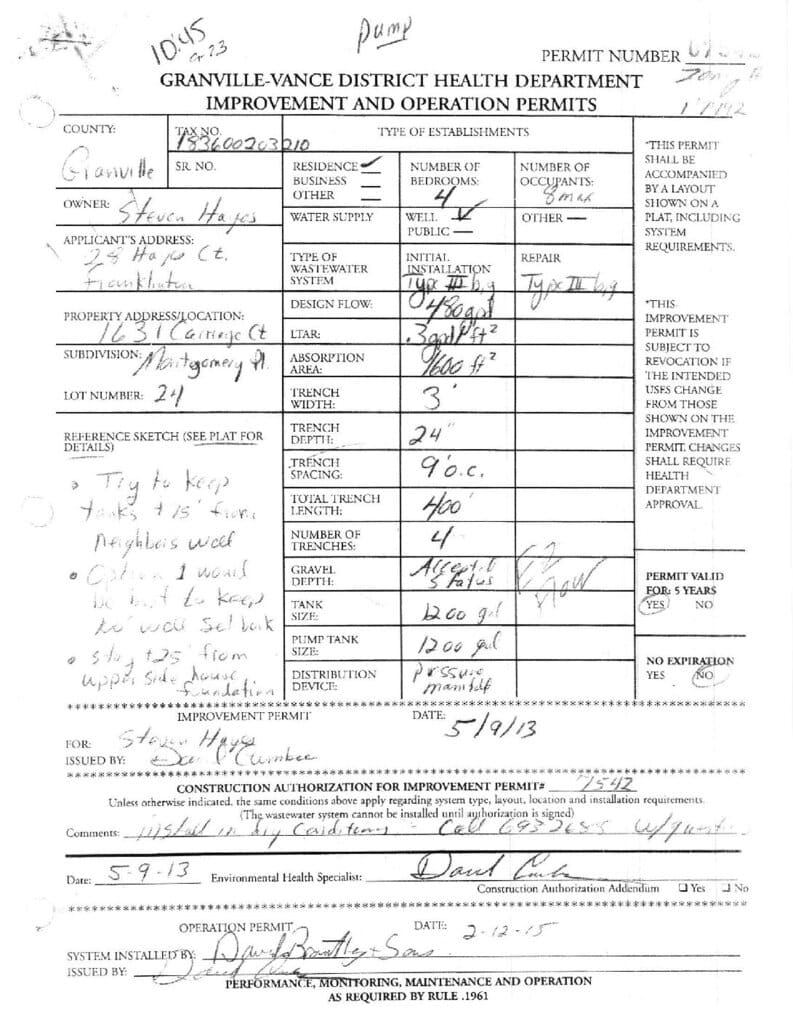 10:45
or 23
Pump
PERMIT NUMBER
GRANVILLE-VANCE DISTRICT HEALTH DEPARTMENT
IMPROVEMENT AND OPERATION PERMITS
COUNTY:
Granville
TAX NO.
183600203210
SR. NO.
TYPE OF ESTABLISHMENTS
RESIDENCE ✓
BUSINESS
OTHER
NUMBER OF
BEDROOMS:
4
NUMBER OF
OCCUPANTS:
8 max
OWNER: Steven Hayes
WATER SUPPLY
WELL ✓
PUBLIC
OTHER
APPLICANT'S ADDRESS:
28 Hayes Ct.
Franklinton
TYPE OF
WASTEWATER
SYSTEM
INITIAL
INSTALLATION
Type III b,g
REPAIR
Type III b,g
PROPERTY ADDRESS/LOCATION:
1631 Carriage Ct
SUBDIVISION: Montgomery Pl.
LOT NUMBER: 24
DESIGN FLOW: 480 gpd
LTAR: .3 gpd/ft²
ABSORPTION
AREA: 1600 ft²
TRENCH
WIDTH: 3'
TRENCH
DEPTH: 24"
TRENCH
SPACING: 9' o.c.
TOTAL TRENCH
LENGTH: 400'
NUMBER OF
TRENCHES: 4
GRAVEL
DEPTH: Accepted
Status
TANK
SIZE: 1200 gal
PUMP TANK
SIZE: 1200 gal
DISTRIBUTION
DEVICE: pressure
manifold
REFERENCE SKETCH (SEE PLAT FOR
DETAILS)
• Try to keep
tanks +15' from
Neighbors well
• Option 1 would
be but to keep
well set back
• stay +25' from
upper side house
foundation
*THIS PERMIT
SHALL BE
ACCOMPANIED
BY A LAYOUT
SHOWN ON A
PLAT, INCLUDING
SYSTEM
REQUIREMENTS.
*THIS
IMPROVEMENT
PERMIT IS
SUBJECT TO
REVOCATION IF
THE INTENDED
USES CHANGE
FROM THOSE
SHOWN ON THE
IMPROVEMENT
PERMIT. CHANGES
SHALL REQUIRE
HEALTH
DEPARTMENT
APPROVAL.
PERMIT VALID
FOR: 5 YEARS
YES NO
NO EXPIRATION
YES NO
IMPROVEMENT PERMIT DATE: 5/9/13
FOR: Steven Hayes
ISSUED BY: David Cumbee
CONSTRUCTION AUTHORIZATION FOR IMPROVEMENT PERMIT# 7542
Unless otherwise indicated, the same conditions above apply regarding system type, layout, location and installation requirements.
(The wastewater system cannot be installed until authorization is signed)
Comments: install in dry conditions - Call 6932688 w/questions
Date: 5-9-13 Environmental Health Specialist:
Construction Authorization Addendum ☐ Yes ☐ No
OPERATION PERMIT DATE: 2-12-15
SYSTEM INSTALLED BY: David Brantley + Sons
ISSUED BY:
PERFORMANCE, MONITORING, MAINTENANCE AND OPERATION
AS REQUIRED BY RULE .1961